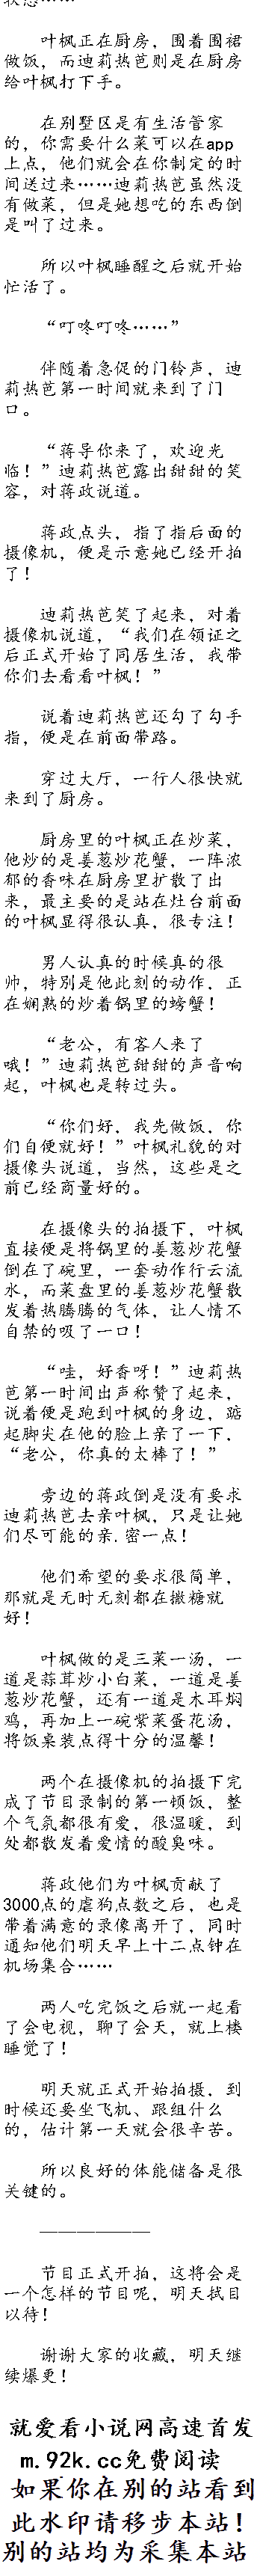 叶枫正在厨房，围着围裙
做饭，而迪莉热芭则是在厨房
给叶枫打下手。
在别墅区是有生活管家
的，你需要什么菜可以在app
上点，他们就会在你制定的时
间送过来……迪莉热芭虽然没
有做菜，但是她想吃的东西倒
是叫了过来。
所以叶枫睡醒之后就开始
忙活了。
“叮咚叮咚……”
伴随着急促的门铃声，迪
莉热芭第一时间就来到了门
口。
“蒋导你来了，欢迎光
临！”迪莉热芭露出甜甜的笑
容，对蒋政说道。
蒋政点头，指了指后面的
摄像机，便是示意她已经开拍
了！
迪莉热芭笑了起来，对着
摄像机说道，“我们在领证之
后正式开始了同居生活，我带
你们去看看叶枫！”
说着迪莉热芭还勾了勾手
指，便是在前面带路。
穿过大厅，一行人很快就
来到了厨房。
厨房里的叶枫正在炒菜，
他炒的是姜葱炒花蟹，一阵浓
郁的香味在厨房里扩散了出
来，最主要的是站在灶台前面
的叶枫显得很认真，很专注！
男人认真的时候真的很
帅，特别是他此刻的动作，正
在娴熟的炒着锅里的螃蟹！
“老公，有客人来了
哦！”迪莉热芭甜甜的声音响
起，叶枫也是转过头。
“你们好，我先做饭，你
们自便就好！”叶枫礼貌的对
摄像头说道，当然，这些是之
前已经商量好的。
在摄像头的拍摄下，叶枫
直接便是将锅里的姜葱炒花蟹
倒在了碗里，一套动作行云流
水，而菜盘里的姜葱炒花蟹散
发着热腾腾的气体，让人情不
自禁的吸了一口！
“哇，好香呀！”迪莉热
芭第一时间出声称赞了起来，
说着便是跑到叶枫的身边，踮
起脚尖在他的脸上亲了一下，
“老公，你真的太棒了！”
旁边的蒋政倒是没有要求
迪莉热芭去亲叶枫，只是让她
们尽可能的亲.密一点！
他们希望的要求很简单，
那就是无时无刻都在撒糖就
好！
叶枫做的是三菜一汤，一
道是蒜茸炒小白菜，一道是姜
葱炒花蟹，还有一道是木耳焖
鸡，再加上一碗紫菜蛋花汤，
将饭桌装点得十分的温馨！
两个在摄像机的拍摄下完
成了节目录制的第一顿饭，整
个气氛都很有爱，很温暖，到
处都散发着爱情的酸臭味。
蒋政他们为叶枫贡献了
3000点的虐狗点数之后，也是
带着满意的录像离开了，同时
通知他们明天早上十二点钟在
机场集合……
两人吃完饭之后就一起看
了会电视，聊了会天，就上楼
睡觉了！
明天就正式开始拍摄，到
时候还要坐飞机、跟组什么
的，估计第一天就会很辛苦。
所以良好的体能储备是很
关键的。
——————
节目正式开拍，这将会是
一个怎样的节目呢，明天拭目
以待！
谢谢大家的收藏，明天继
续爆更！
就爱看小说网高速首发
m.92k.cc免费阅读
如果你在别的站看到
此水印请移步本站！
别的站均为采集本站